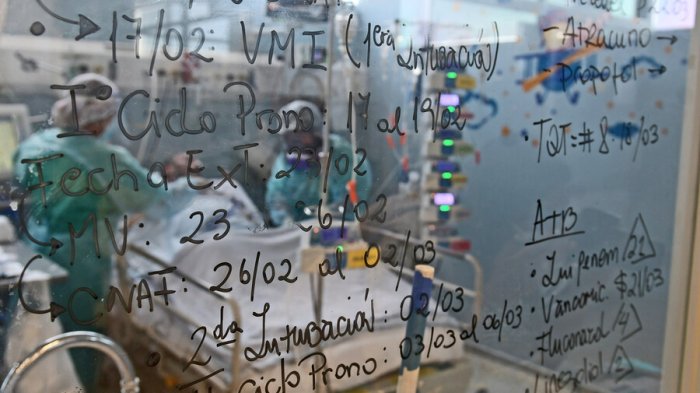 17/02: VMI (1era Intubación)
I° Ciclo Prono: 17 al 19/02
Fecha Ext: 23/02
MV: 23 26/02
CNAF: 26/02 al 02/03
2da Intubación: 02/03
Ciclo Prono: 03/03 al 06/03
- Atracurio
- Propofol →
• TQT: #8 - 16/03
ATB
• Imipenem
• Vancomic. 21/03
• Fluconazol 4